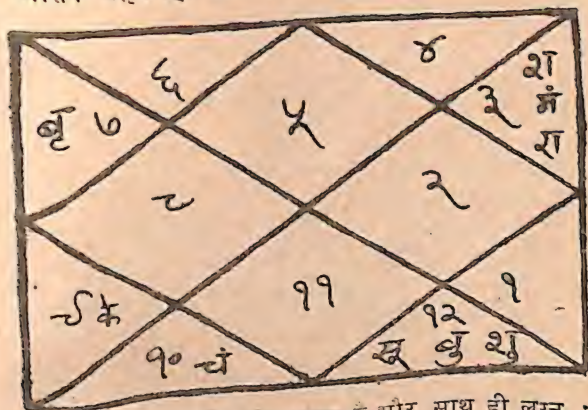 ६
४
बृ ७
५
३
श
मं
रा
८
२
९ के
११
१
१० चं
१२
सू बु शु
और साथ ही लग्न